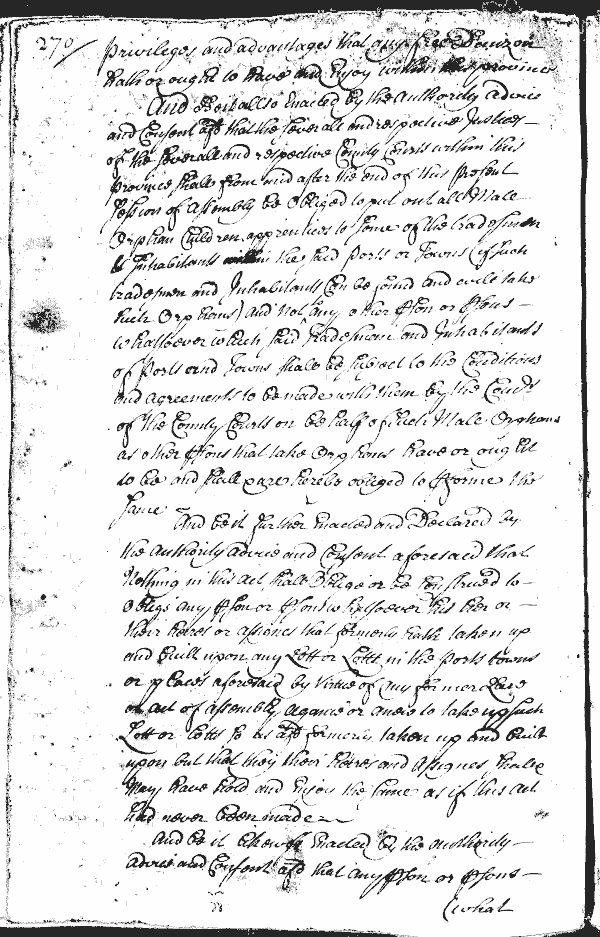 270/
Privileges and advantages that any free Denizon
hath or ought to have and Enjoy within this province
And be it also Enacted by the Authority advice
and Consent afd that the severall and respective Justices
of the severall and respective County Courts within this
province shall from and after the end of this present
Session of Assembly be Obliged to put out all Male
Orphan Children apprentices to some of the tradesmen
& Inhabitants within the said Ports or Towns (if such
tradesmen and Inhabitants Can be found and will take
such Orphans) and not any other Pson or Psons
whatsoever which said tradesmen and Inhabitants
of Ports and Towns shall be subject to the Conditions
and agreements to be made with them by the Courts
of the County Courts on behalf of such Male Orphans
as other Psons that take Orphans have or ought
to be and shall are hereby obliged to Pforme the
same
And be it further Enacted and Declared by
the authority advice and Consent aforesaid that
Nothing in this act shall Oblige or be Construed to
oblige any Pson or Psons whatsoever his her or
their heires or assignes that formerly hath taken up
and built upon any Lott or Lotts in the ports towns
or places aforesaid by Virtue of any former Law
or act of assembly againe or anew to take up such
Lott or Lotts so as afd formerly taken up and built
upon but that they their heires and Assignes shall
May have hold and Enjoy the same as if this act
had never been made
And be it likewise Enacted by the authority
advice and Consent afd that any Pson or Psons
(what